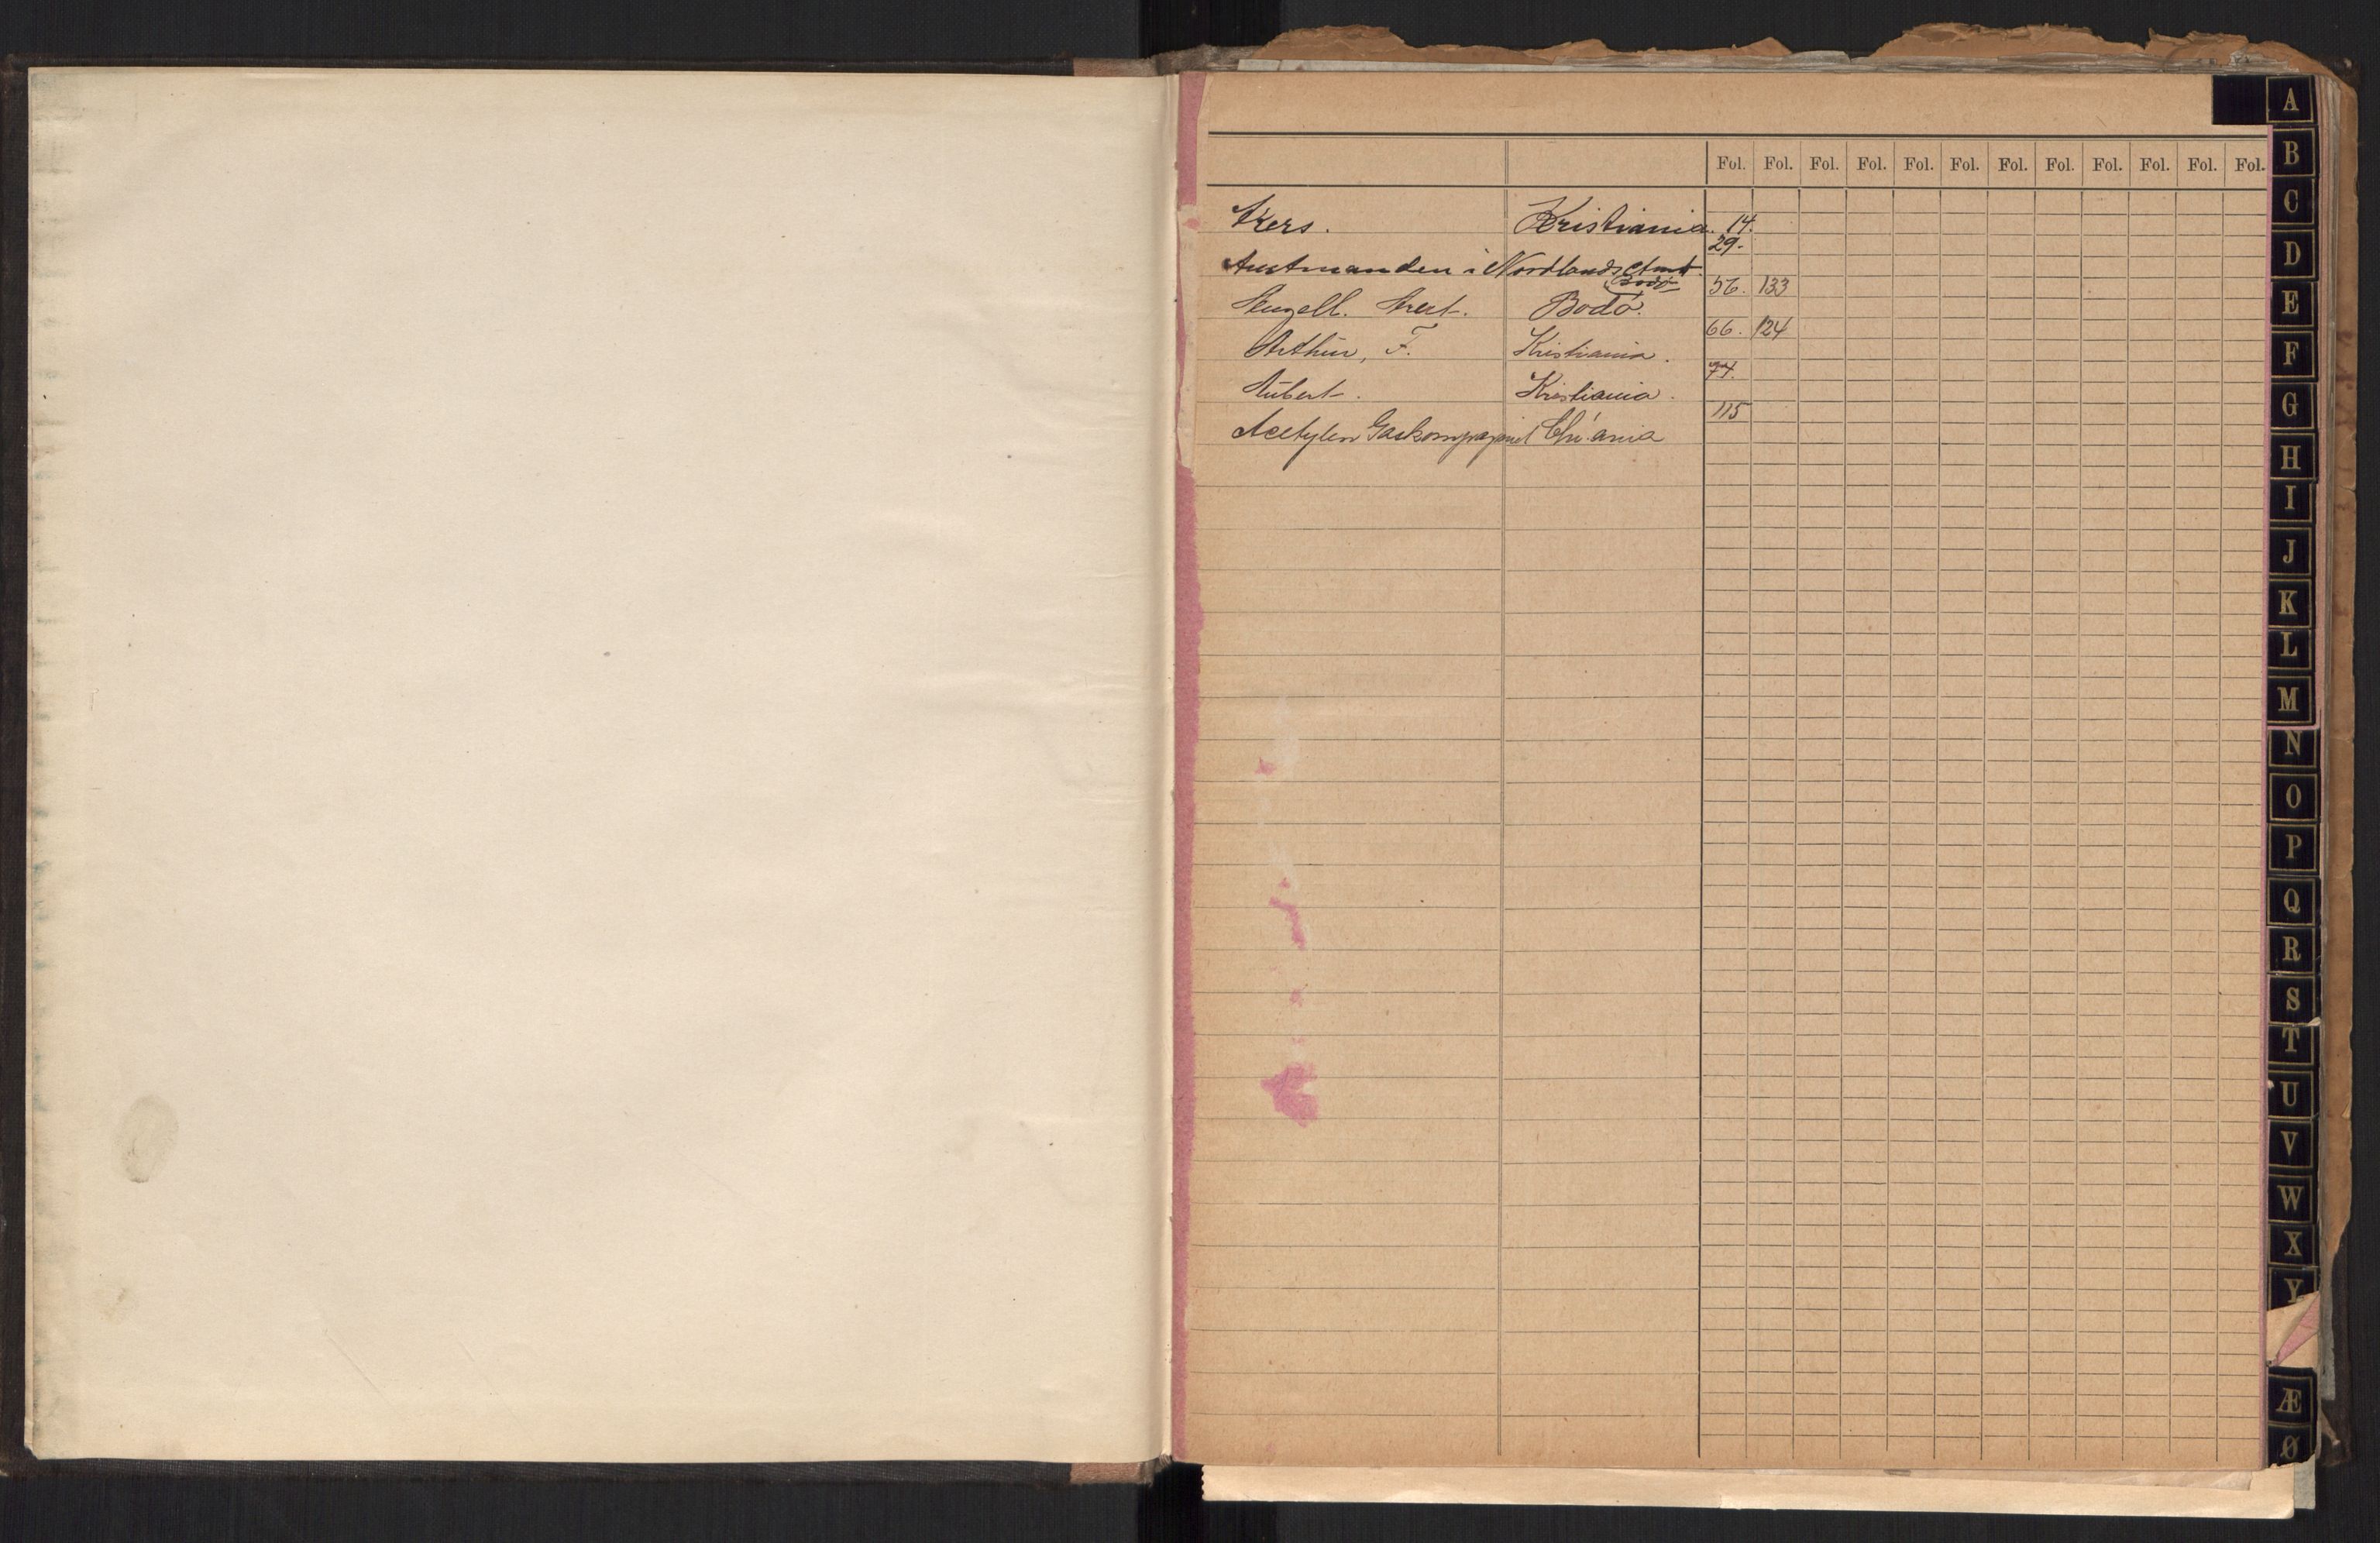 Fol. Fol. Fol. Fol. Fol. Fol. Fol. Fol. Fol. Fol. Fol. Fol.
Akers. Kristiania. 14.
29.
Amtmanden i Nordlands Amt.
Bodø
56. 133
Angell. Bodø.
66. 124
Arthur, F. Kristiania.
74.
Aubert. Kristiania.
115
Acetylen Gaskompagniet Chr.ania
A
B
C
D
E
F
G
H
I
J
K
L
M
N
O
P
Q
R
S
T
U
V
W
X
Y
Æ
Ø